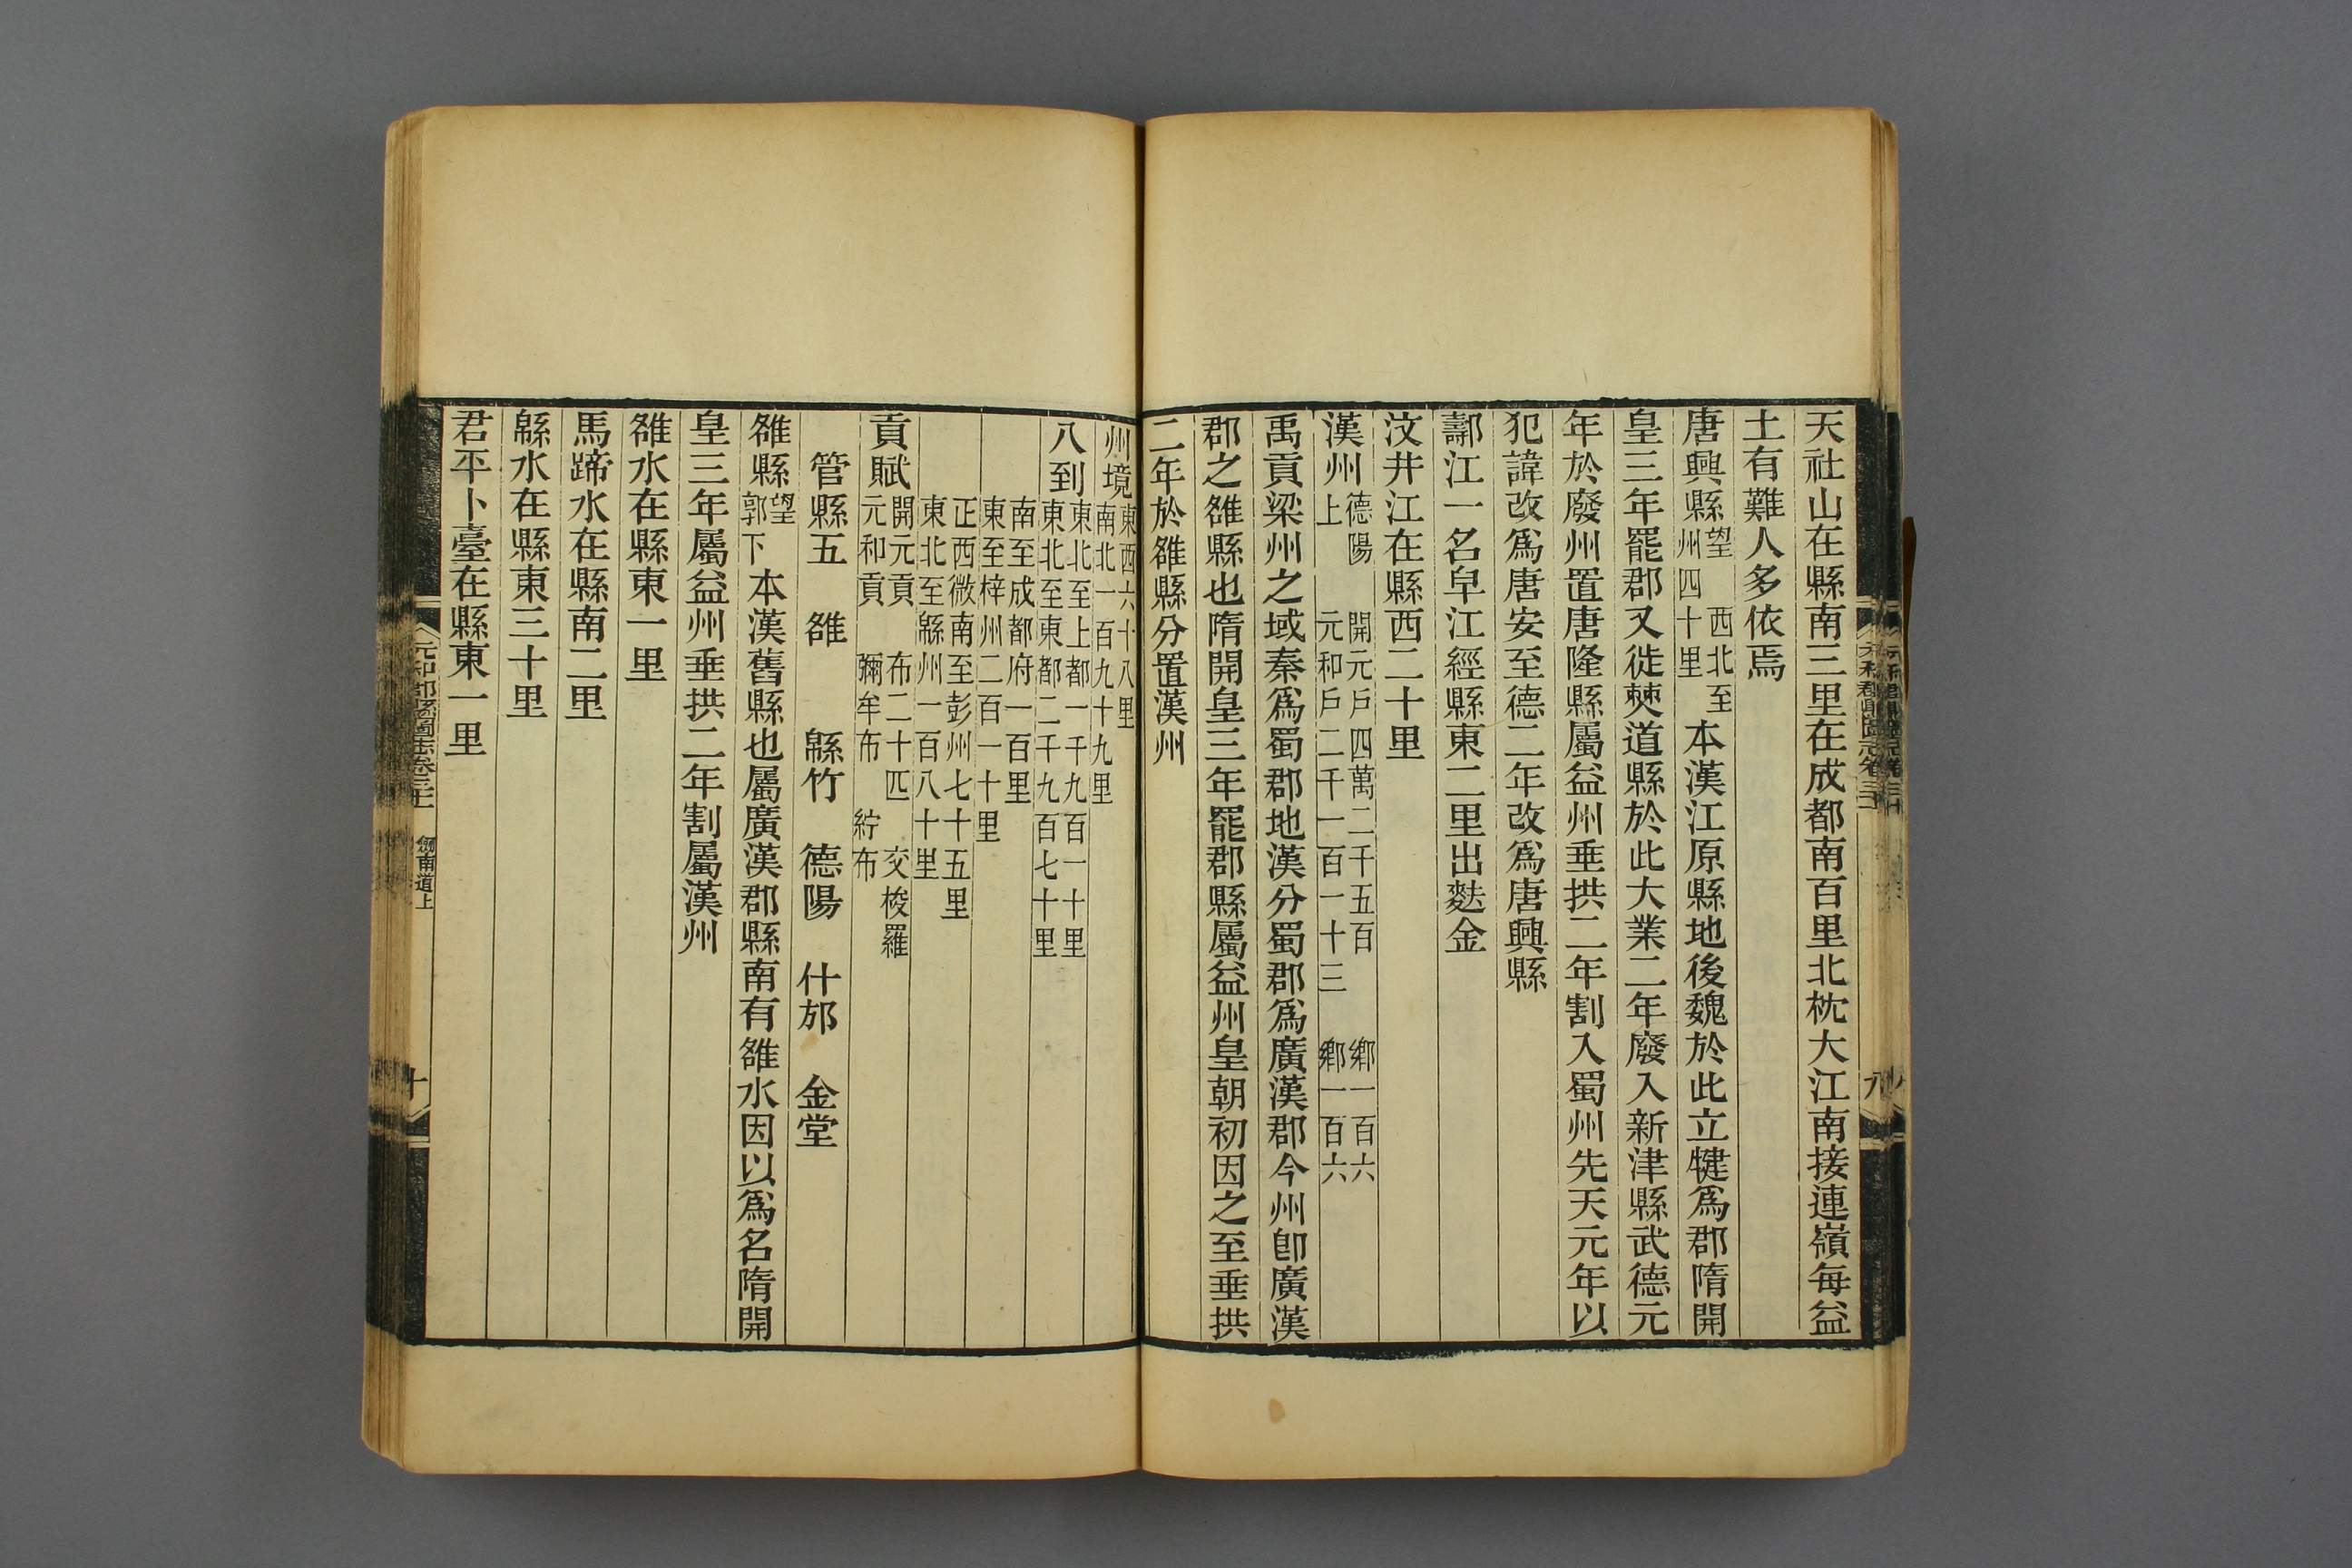 天社山在縣南三里在成都南百里北枕大江南接連嶺每益
土有難人多依焉
唐興縣望 西北至州四十里 本漢江原縣地後魏於此立犍爲郡隋開
皇三年罷郡又徙僰道縣於此大業二年廢入新津縣武德元
年於廢州置唐隆縣屬益州垂拱二年割入蜀州先天元年以
犯諱改爲唐安至德二年改爲唐興縣
鄩江一名皁江經縣東二里出麩金
汶井江在縣西二十里
漢州德陽上 開元戶四萬二千五百 鄉一百六 元和戶二千一百一十三 鄉一百六
禹貢梁州之域秦爲蜀郡地漢分蜀郡爲廣漢郡今州卽廣漢
郡之雒縣也隋開皇三年罷郡縣屬益州皇朝初因之至垂拱
二年於雒縣分置漢州
州境東西六十八里南北一百九十九里
八到東北至上都一千九百一十里東北至東都二千九百七十里
南至成都府一百里東至梓州二百一十里
正西微南至彭州七十五里東北至緜州一百八十里
貢賦開元貢 布二十匹 交梭羅 元和貢 彌牟布 紵布
管縣五 雒 緜竹 德陽 什邡 金堂
雒縣望郭下 本漢舊縣也屬廣漢郡縣南有雒水因以爲名隋開
皇三年屬益州垂拱二年割屬漢州
雒水在縣東一里
馬蹄水在縣南二里
緜水在縣東三十里
君平卜臺在縣東一里
元和郡縣圖志卷三十一 劍南道上
十